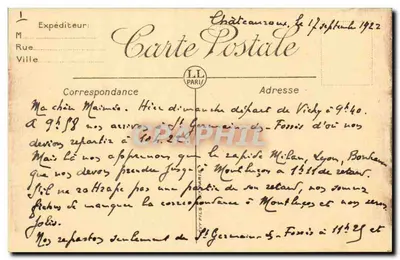 1
Châteauroux, le 17 septembre 1922
Expéditeur:
M
Rue
Ville
Carte Postale
LL
PARIS
Correspondance
Adresse
Ma chère Maimée. Hier dimanche départ de Vichy à 9h40.
A 9h58 nous arrivons à St Germain des Fossés d'où nous
devions repartir à
Mais là nous apprenons que le rapide Milan, Lyon, Bordeaux
que nous devons prendre jusqu'à Montluçon a 1h15 de retard.
S'il ne rattrape pas une partie de son retard, nous sommes
fichus de manquer la correspondance à Montluçon et nous serons
jolis.
Nous repartons seulement de St Germain-ds-Fossés à 11h25 et